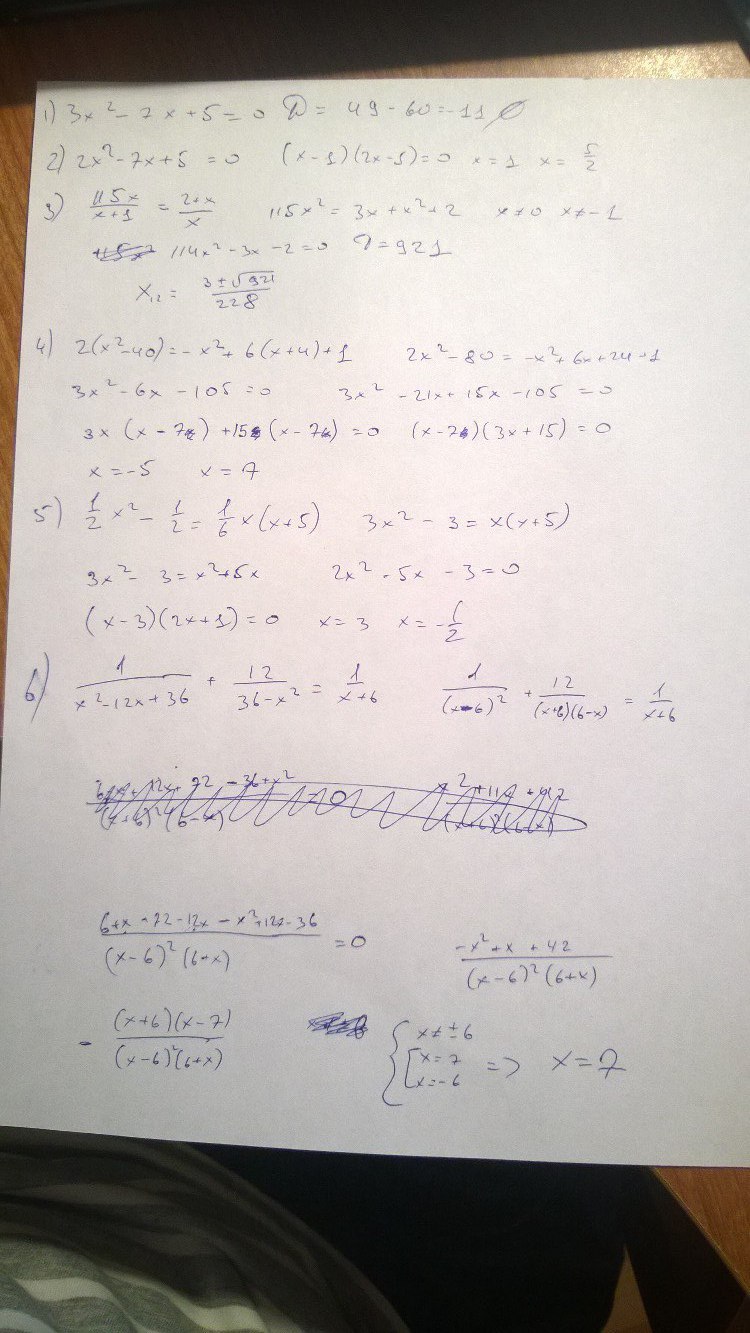 1) 3x² - 7x + 5 = 0 D = 49 - 60 = -11 ∅
2) 2x² - 7x + 5 = 0 (x-1)(2x-5) = 0 x = 1 x = 5/2
3) 115x/(x+1) = (2+x)/x 115x² = 3x + x² + 2 x ≠ 0 x ≠ -1
114x² - 3x - 2 = 0 D = 921
x₁₂ = (3 ± √921)/228
4) 2(x² - 40) = -x² + 6(x+4) + 1 2x² - 80 = -x² + 6x + 24 + 1
3x² - 6x - 105 = 0 3x² - 21x + 15x - 105 = 0
3x (x - 7) + 15 (x - 7) = 0 (x - 7)(3x + 15) = 0
x = -5 x = 7
5) 1/2 x² - 1/2 = 1/6 x(x+5) 3x² - 3 = x(x+5)
3x² - 3 = x² + 5x 2x² - 5x - 3 = 0
(x-3)(2x+1) = 0 x = 3 x = -1/2
6) 1/(x² - 12x + 36) + 12/(36 - x²) = 1/(x+6) 1/(x-6)² + 12/((x+6)(6-x)) = 1/(x+6)
(6+x+72-12x-x²+12x-36)/((x-6)²(6+x)) = 0 (-x²+x+42)/((x-6)²(6+x))
- ((x+6)(x-7))/((x-6)²(6+x))
{ x ≠ ±6
[ x = 7 => x = 7
x = -6